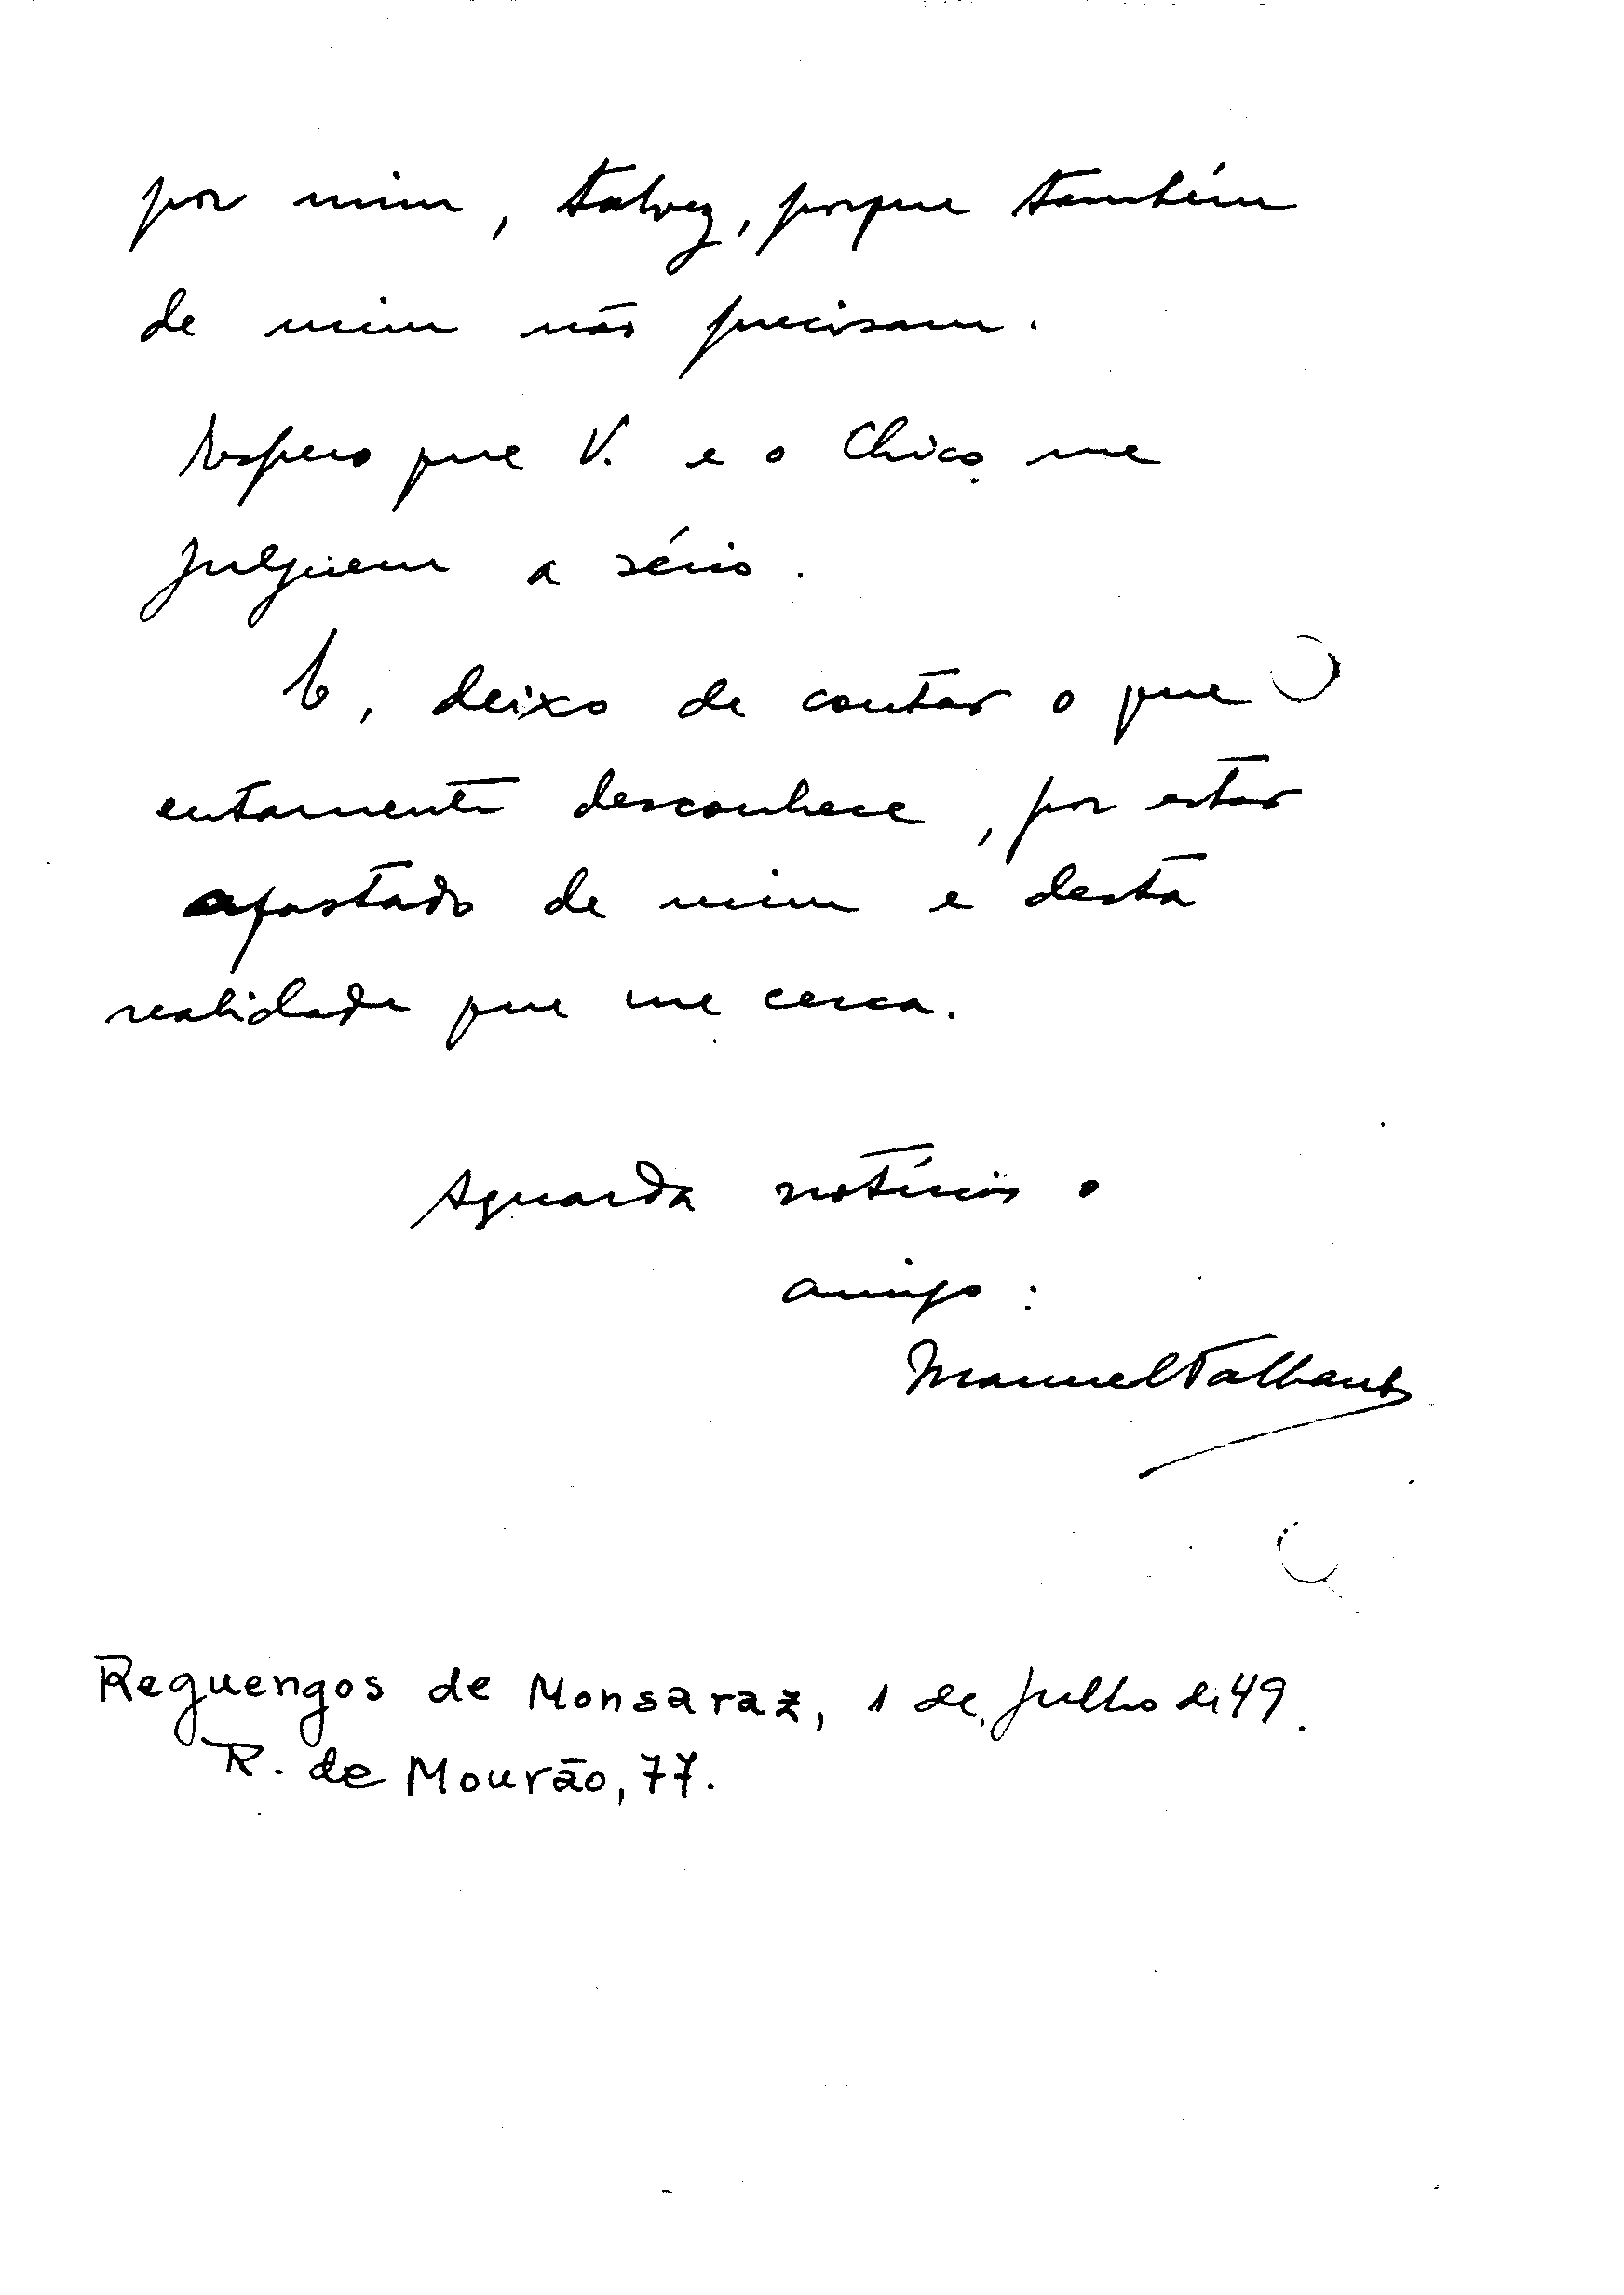 por mim, talvez, porque também
de mim não precisam.
Espero que V. e o Chico me
julguem a sério.
E, deixo de contar o que
certamente desconhece, por estar
afastado de mim e desta
realidade que me cerca.
Aguarda notícias o
amigo:
Manuel
Reguengos de Monsaraz, 1 de Julho de 49.
R. de Mourão, 77.